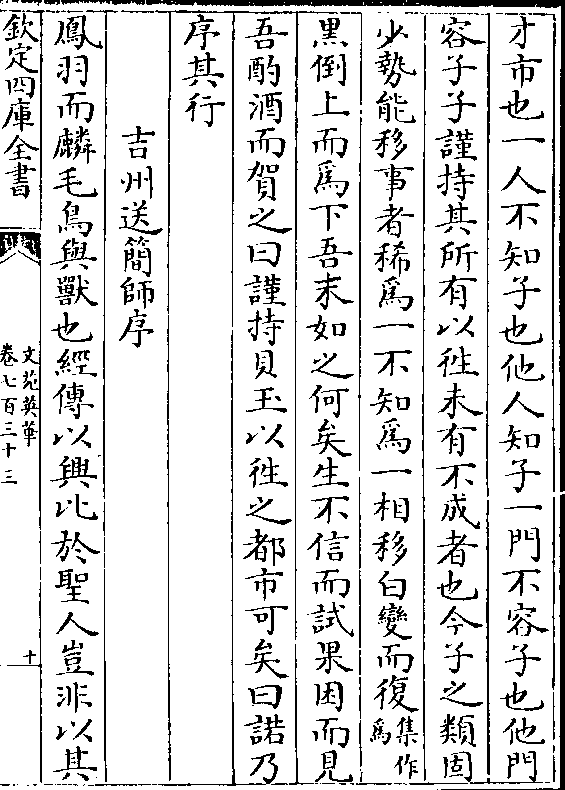 才市也一人不知子也他人知子一門不容子也他門
容子子謹持其所有以徃未有不成者也今子之類固
少勢能移事者稀爲一不知爲一相移白變而復集作爲
黒倒上而爲下吾末如之何矣生不信而試果困而見
吾酌酒而賀之曰謹持貝玉以徃之都市可矣曰諾乃
序其行
吉州送簡師序
鳳羽而麟毛鳥與獸也經傳以興比於聖人豈非以其
欽定四庫全書
文苑英華
卷七百三十三
十